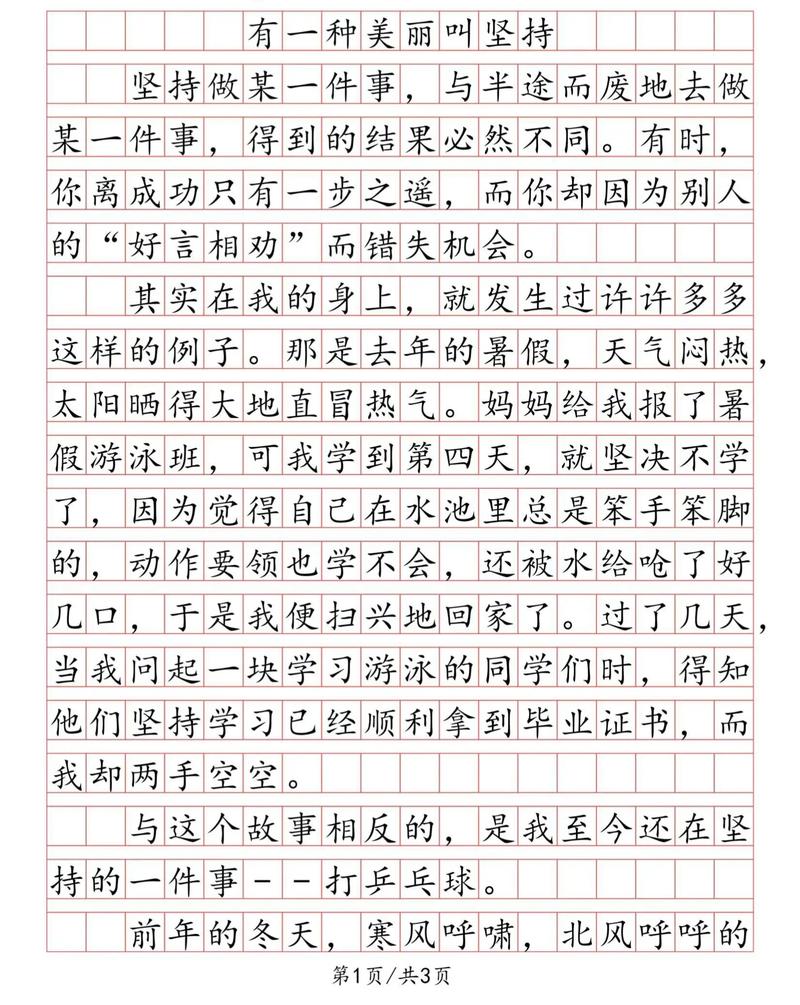 有一种美丽叫坚持
坚持做某一件事，与半途而废地去做
某一件事，得到的结果必然不同。有时，
你离成功只有一步之遥，而你却因为别人
的“好言相劝”而错失机会。
其实在我的身上，就发生过许许多多
这样的例子。那是去年的暑假，天气闷热，
太阳晒得大地直冒热气。妈妈给我报了暑
假游泳班，可我学到第四天，就坚决不学
了，因为觉得自己在水池里总是笨手笨脚
的，动作要领也学不会，还被水给呛了好
几口，于是我便扫兴地回家了。过了几天，
当我问起一块学习游泳的同学们时，得知
他们坚持学习已经顺利拿到毕业证书，而
我却两手空空。
与这个故事相反的，是我至今还在坚
持的一件事--打乒乓球。
前年的冬天，寒风呼啸，北风呼呼的
第1页/共3页